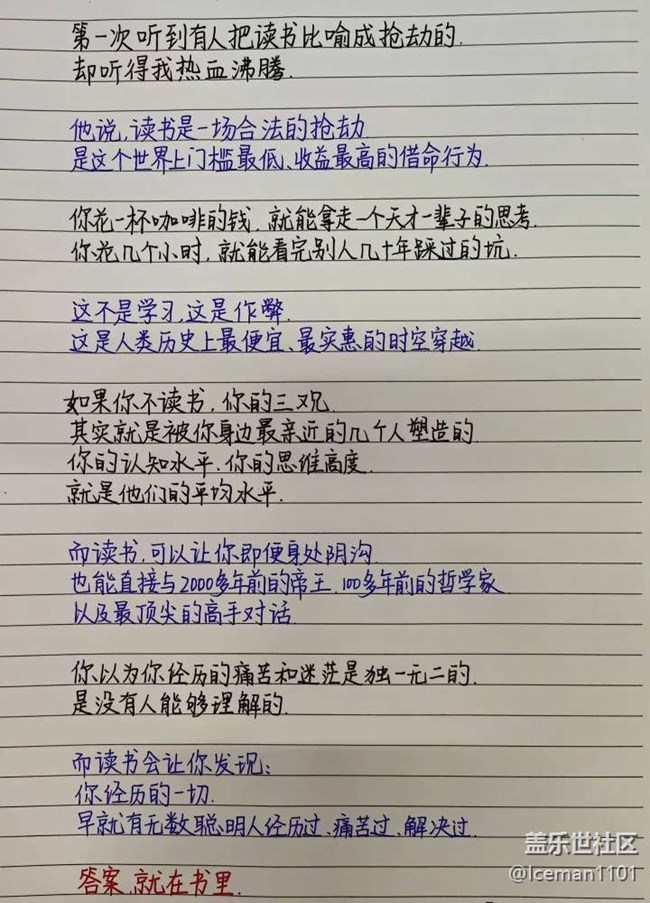 第一次听到有人把读书比喻成抢劫的.
却听得我热血沸腾.
他说,读书是一场合法的抢劫
是这个世界上门槛最低、收益最高的借命行为.
你花一杯咖啡的钱,就能拿走一个天才一辈子的思考.
你花几个小时,就能看完别人几十年踩过的坑.
这不是学习,这是作弊.
这是人类历史上最便宜、最实惠的时空穿越
如果你不读书,你的三观
其实就是被你身边最亲近的几个人塑造的
你的认知水平.你的思维高度.
就是他们的平均水平.
而读书,可以让你即便身处阴沟
也能直接与2000多年前的帝王、100多年前的哲学家
以及最顶尖的高手对话
你以为你经历的痛苦和迷茫是独一无二的.
是没有人能够理解的.
而读书会让你发现:
你经历的一切.
早就有无数聪明人经历过、痛苦过、解决过.
答案,就在书里.
盖乐世社区
@Iceman1101